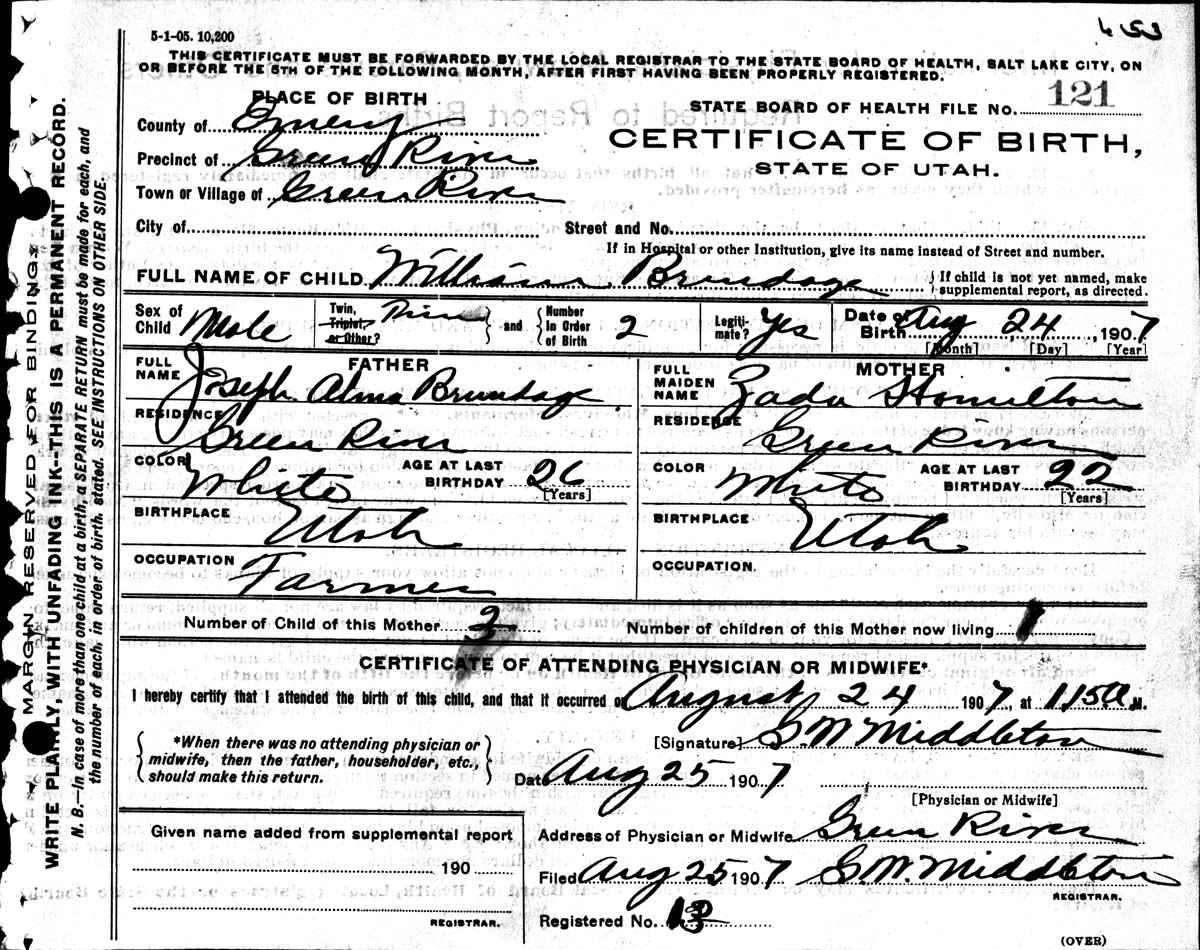 453
5-1-05. 10,200
THIS CERTIFICATE MUST BE FORWARDED BY THE LOCAL REGISTRAR TO THE STATE BOARD OF HEALTH, SALT LAKE CITY, ON
OR BEFORE THE 5TH OF THE FOLLOWING MONTH, AFTER FIRST HAVING BEEN PROPERLY REGISTERED.
PLACE OF BIRTH
STATE BOARD OF HEALTH FILE NO. 121
County of Emery
CERTIFICATE OF BIRTH,
Precinct of Green River
STATE OF UTAH.
Town or Village of Green River
City of Street and No.
If in Hospital or other Institution, give its name instead of Street and number.
FULL NAME OF CHILD William Brundage { If child is not yet named, make supplemental report, as directed.
Sex of Child Male Twin, Triplet, or Other? Twin and Number in Order of Birth 2 Legitimate? Yes Date of Birth Aug 24, 1907
[Month] [Day] [Year]
FULL NAME FATHER Joseph Alma Brundage
FULL MAIDEN NAME MOTHER Zada Hamilton
RESIDENCE Green River
RESIDENCE Green River
COLOR White AGE AT LAST BIRTHDAY 26 [Years]
COLOR White AGE AT LAST BIRTHDAY 22 [Years]
BIRTHPLACE Utah
BIRTHPLACE Utah
OCCUPATION Farmer
OCCUPATION
Number of Child of this Mother 3 Number of children of this Mother now living 1
CERTIFICATE OF ATTENDING PHYSICIAN OR MIDWIFE*
I hereby certify that I attended the birth of this child, and that it occurred on August 24 1907, at 1.15 a M.
*When there was no attending physician or
midwife, then the father, householder, etc.,
should make this return.
[Signature] G.W. Middleton
Date Aug 25 1907
[Physician or Midwife]
Given name added from supplemental report
190
REGISTRAR.
Address of Physician or Midwife Green River
Filed Aug 25 1907 G.W. Middleton
REGISTRAR.
Registered No. 13
(OVER)
MARGIN RESERVED FOR BINDING.
WRITE PLAINLY, WITH UNFADING INK--THIS IS A PERMANENT RECORD.
N. B.—In case of more than one child at a birth, a SEPARATE RETURN must be made for each, and
the number of each, in order of birth, stated. SEE INSTRUCTIONS ON OTHER SIDE.